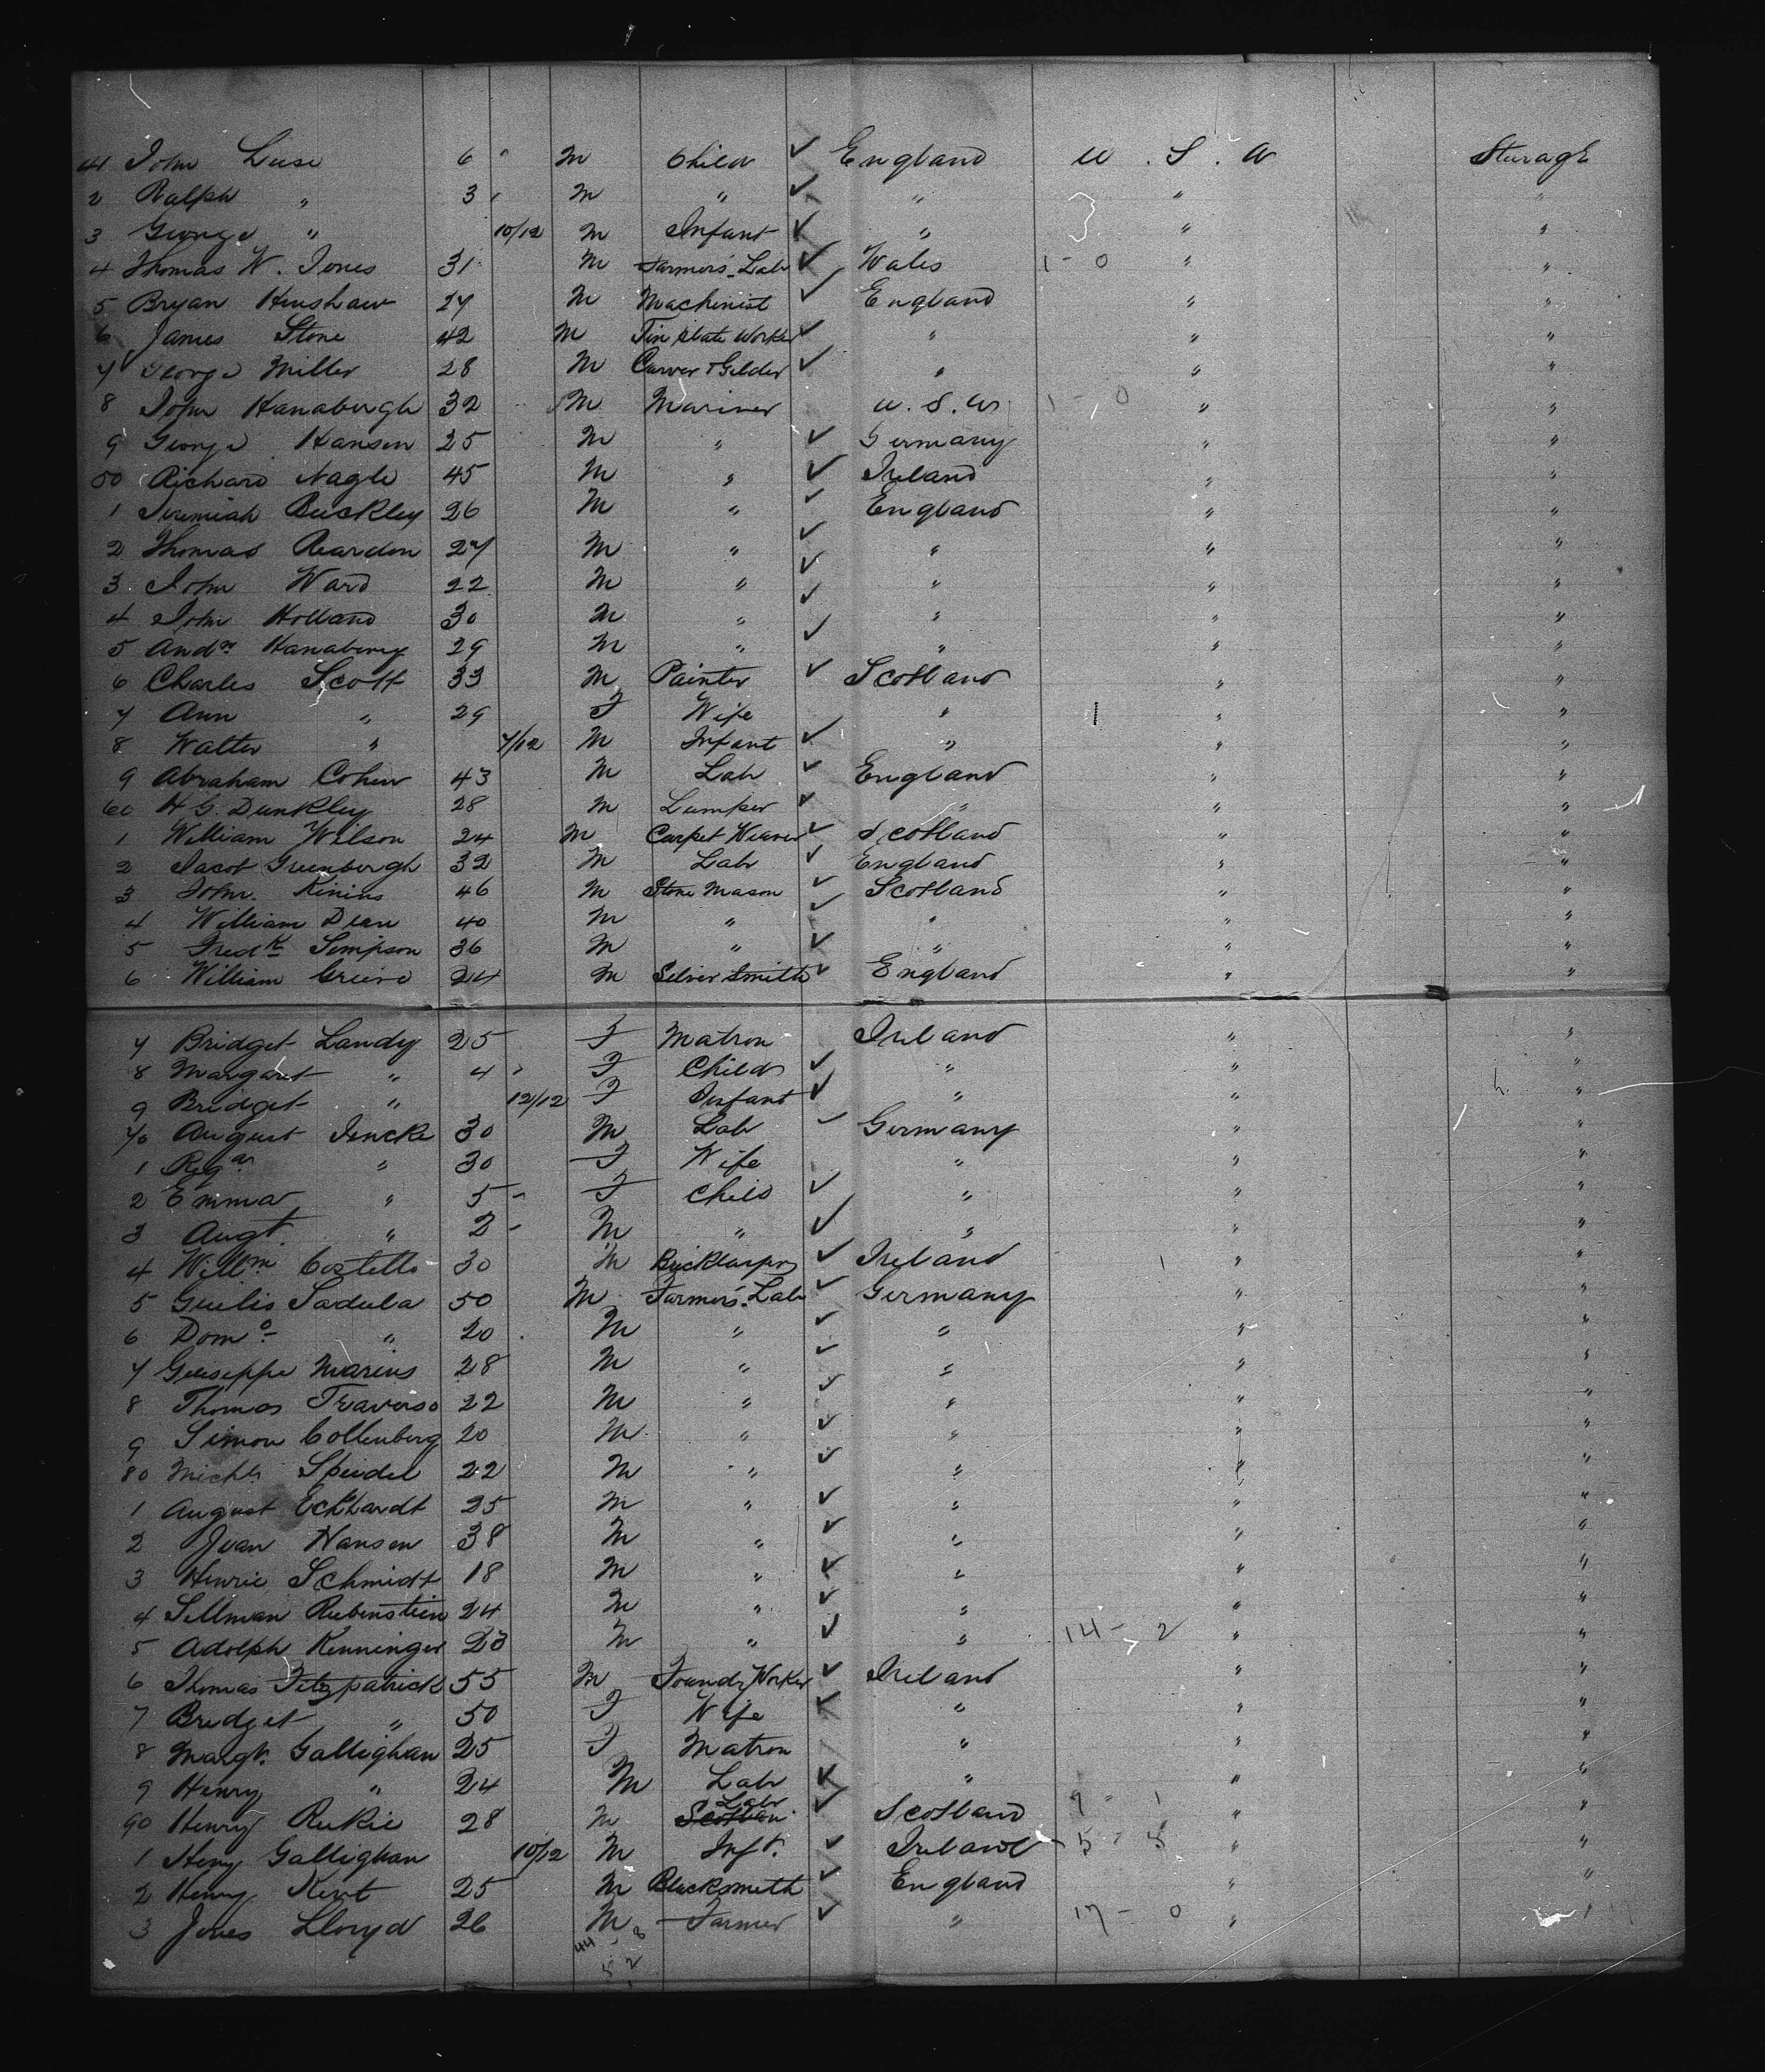 41 John Luse 6 " M Child ✓ England U . S . A Sturage
2 Ralph " 3 " M " ✓ " " "
3 George " 10/12 M Infant ✓ " " "
4 Thomas W. Jones 31 M Farmers Labr ✓ Wales 1 - 0 " "
5 Bryan Henshaw 27 M Machinist ✓ England " "
6 James Stone 42 M Tin plate Worker ✓ " " "
7 George Miller 28 M Carver & Gilder ✓ " " "
8 John Hanabergh 32 M Mariner U. S. A 1 - 0 " "
9 George Hansen 25 M " ✓ Germany " "
50 Richard Nagle 45 M " ✓ Ireland " "
1 Jeremiah Buckley 26 M " ✓ England " "
2 Thomas Reardon 27 M " ✓ " " "
3 John Ward 22 M " ✓ " " "
4 John Holland 30 M " ✓ " " "
5 Andw Hanaberry 29 M " ✓ " " "
6 Charles Scott 33 M Painter ✓ Scotland " "
7 Ann " 29 F Wife " " "
8 Walter " 7/12 M Infant ✓ " " "
9 Abraham Cohen 43 M Labr ✓ England " "
60 H G. Dunkley 28 M Lumper ✓ " " "
1 William Wilson 24 M Carpet Weaver ✓ Scotland " "
2 Jacob Greenbergh 32 M Labr ✓ England " "
3 John Kinins 46 M Stone Mason ✓ Scotland " "
4 William Dean 40 M " ✓ " " "
5 Fredk Simpson 36 M " ✓ " " "
6 William Greive 24 M Silver Smith ✓ England " "
7 Bridget Landy 25 F Matron Ireland " "
8 Margaret " 4 " F Child ✓ " " "
9 Bridget " 12/12 F Infant ✓ " " "
70 August Jencke 30 M Labr ✓ Germany " "
1 " 30 F Wife " " "
2 Emma " 5 " F Child ✓ " " "
3 Augt. " 2 " M " ✓ " " "
4 Willm Costello 30 M ✓ Ireland " "
5 Giulis Sadula 50 M Farmers Labr ✓ Germany " "
6 Domo " 20 M " ✓ " " "
7 Giuseppe Marius 28 M " ✓ " " "
8 Thomas Traverso 22 M " ✓ " " "
9 Simon Collenberg 20 M " ✓ " " "
80 Michl. Speidel 22 M " ✓ " " "
1 August Eckhardt 25 M " ✓ " " "
2 Juan Hansen 38 M " ✓ " " "
3 Henrie Schmidt 18 M " ✓ " " "
4 Sellman Rubenstein 24 M " ✓ " " "
5 Adolph Kenninger 23 M " ✓ " 14 - 2 " "
6 Thomas Fitzpatrick 55 M Foundy Worker ✓ Ireland " "
7 Bridget " 50 F Wife ✓ " " "
8 Margt. Gallighan 25 F Matron " " "
9 Henry " 24 M Labr ✓ " " "
90 Henry Rukie 28 M Scotlan Labr ✓ Scotland 9 - 1 " "
1 Heny Gallighan 10/12 M Inft. ✓ Ireland 5 - 5 " "
2 Henry Kent 25 M Blacksmith ✓ England " "
3 Jones Lloryd 26 M Farmer ✓ " 17 - 0 " "
44 - 8
5 2